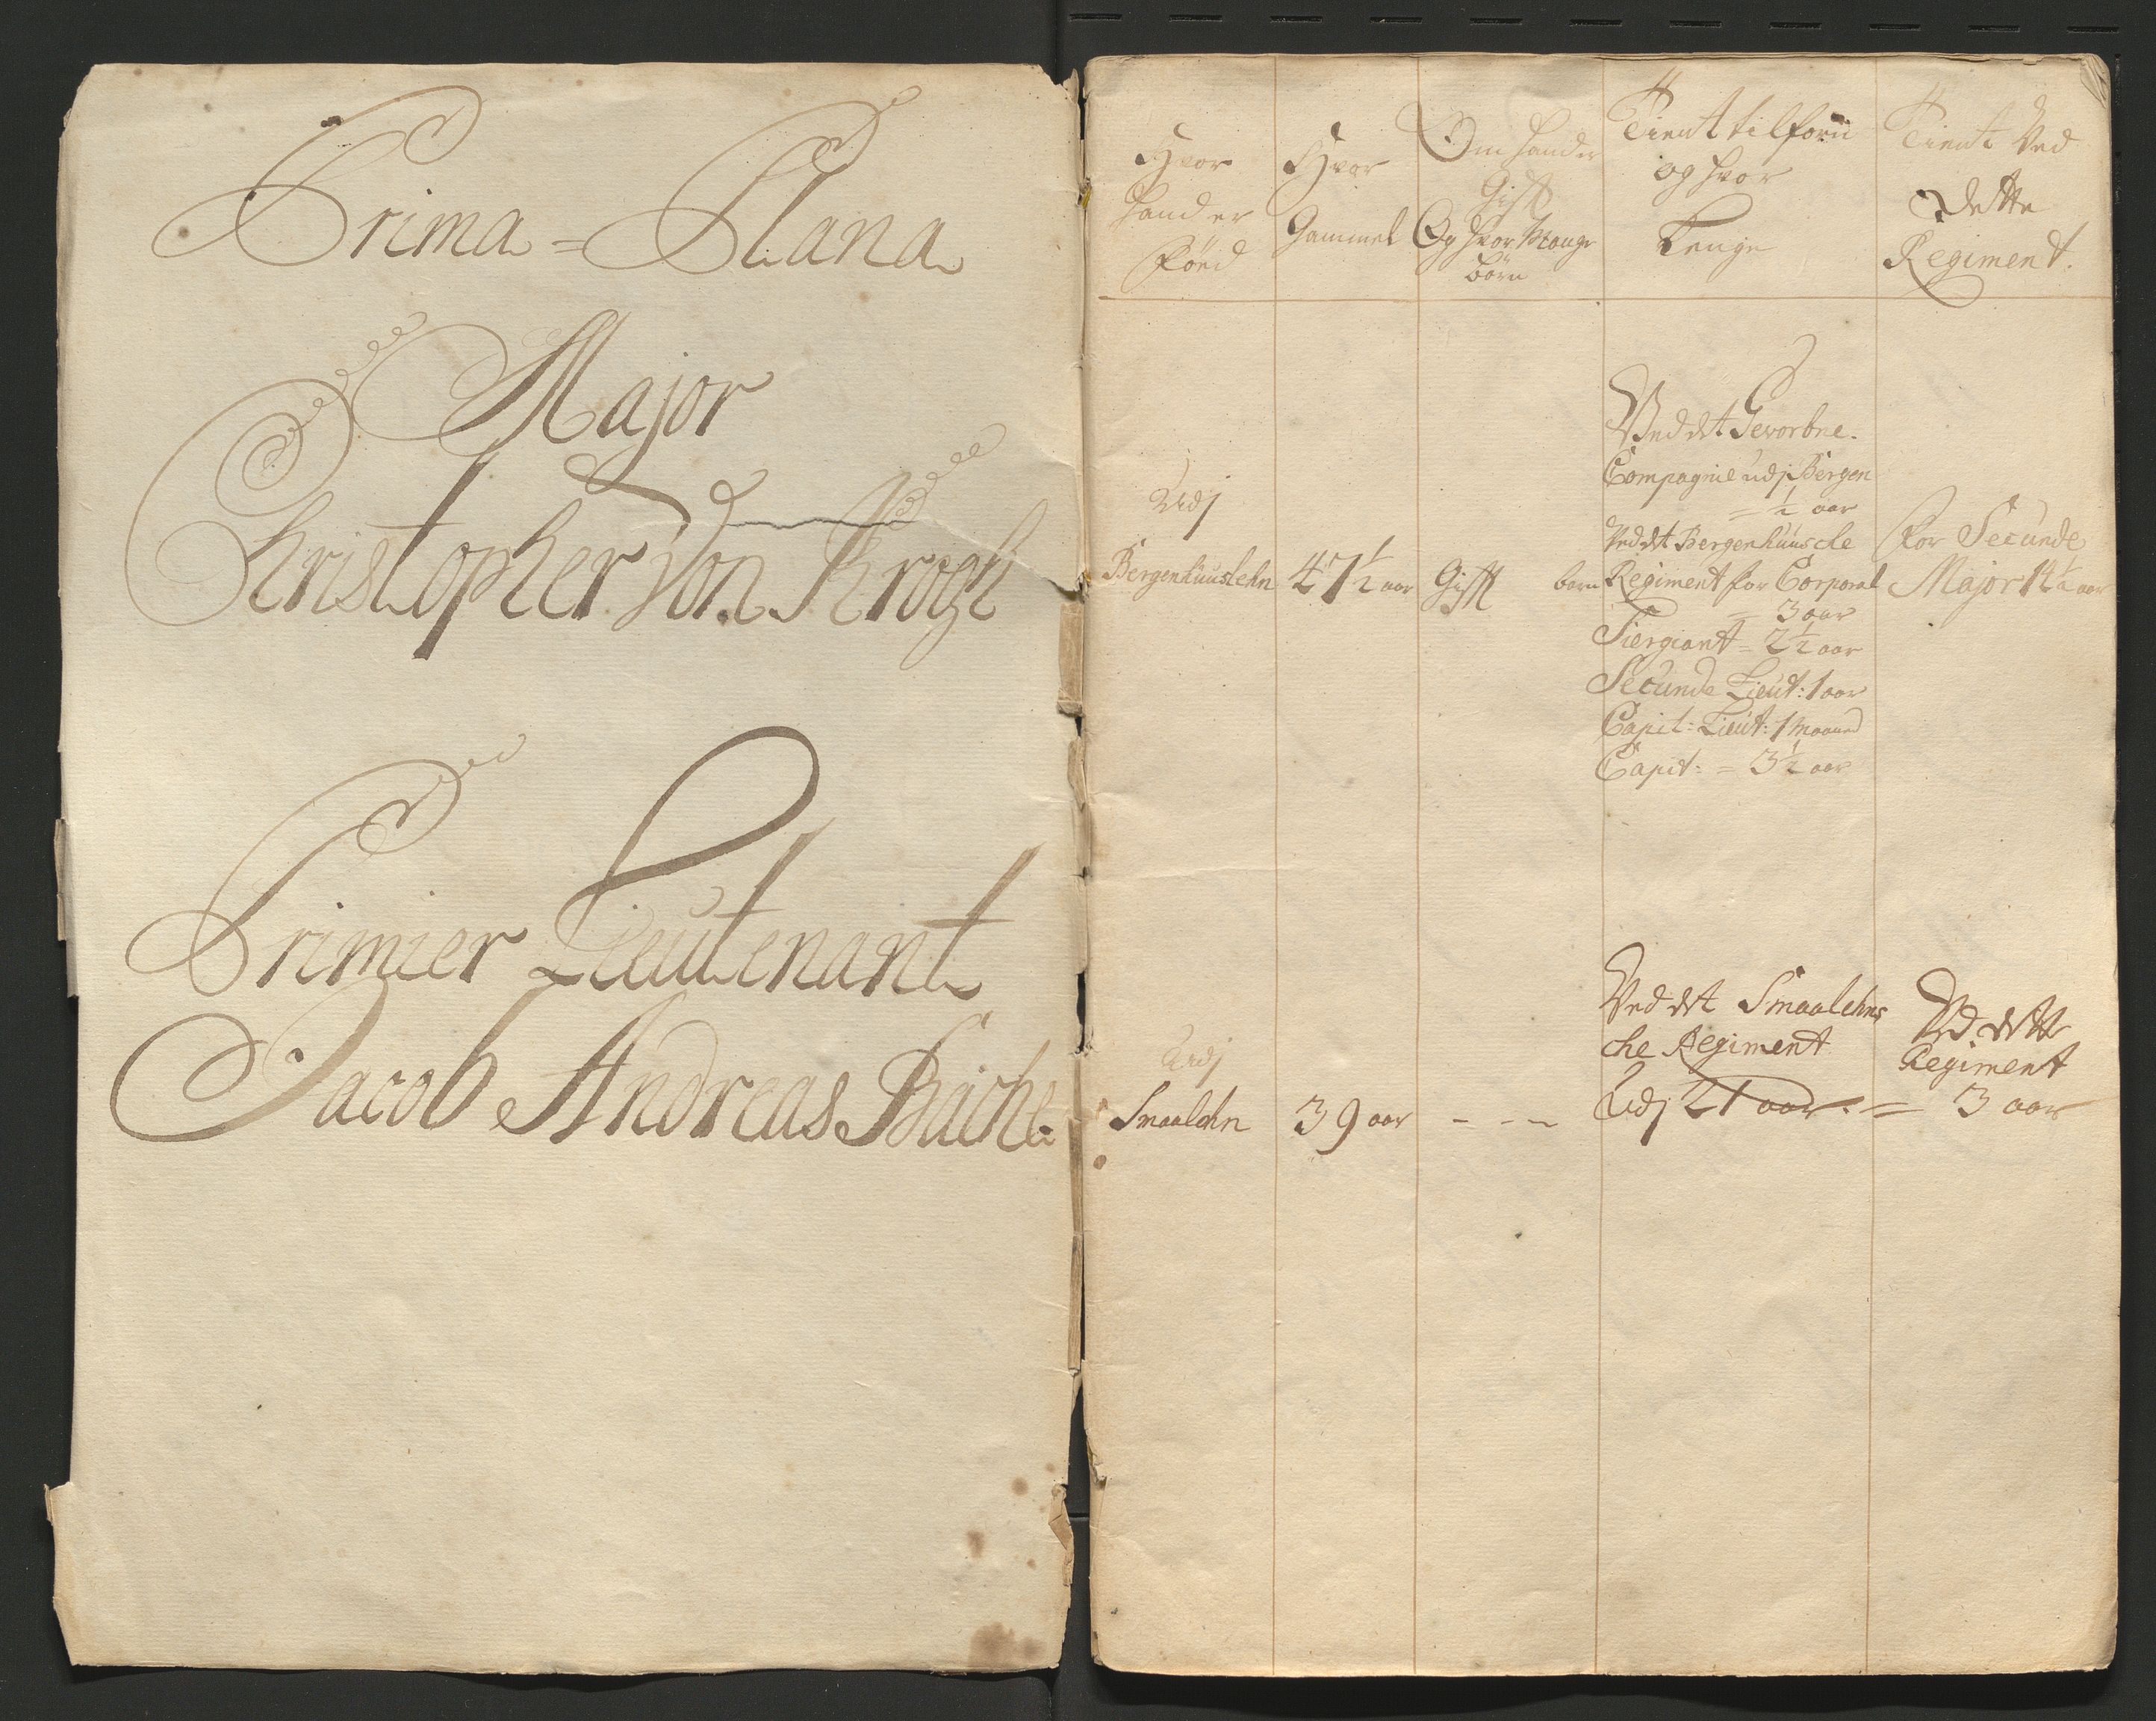 Prima = Plana
Major
Christopher von Krogh
Primier Lieutenant
Jacob Andreas Bache
Hvor
hand er
Föed
Hvor
Gammel
Om hand er
Gift
Og hvor Mange
börn
Tient tilforn
og hvor
Lenge
Tient Ved
Dette
Regiment.
Udj
Bergenhuuslehn
47½ aar
Gifft
børn
Ved det Gevorbne.
Compagnie udj Bergen
= ½ aar
Ved det Bergenhuusche
Regiment for Corporal
= 3 aar
Siergiant = 2½ aar
Secunde Lieut: 1 aar
Capit: Lieut: 1 Maaned
Capit: = 3½ aar
For Secunde
Major 14½ aar
Udj
Smaalehn
39 aar
- - -
Ved det Smaalehns
che Regiment
Udj 21 aar. =
Ved dette
Regiment
3 aar